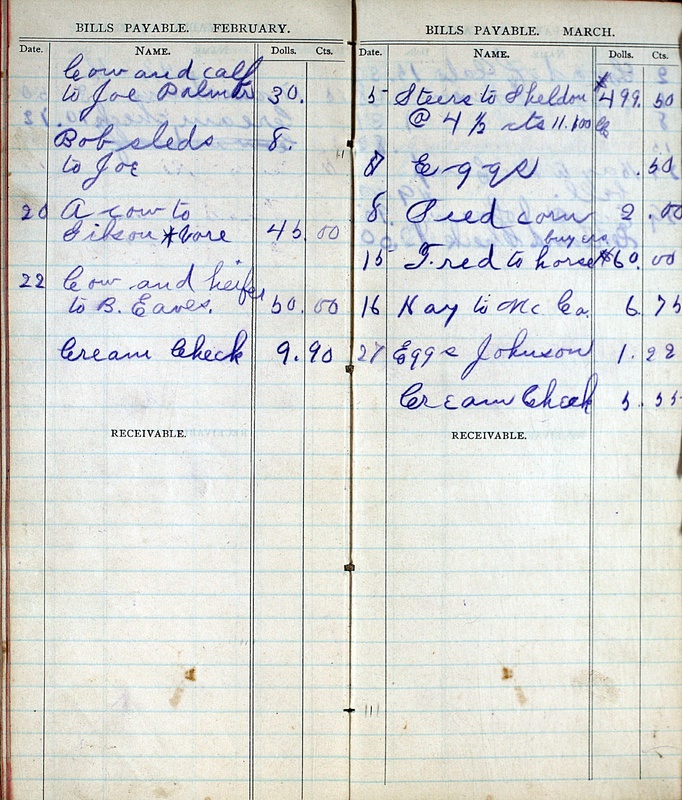 BILLS PAYABLE. FEBRUARY.
Date. NAME. Dolls. Cts.
Cow and calf
to Joe Palmer 30.
Bob sleds 8.
to Joe
20 A cow to
Gibson 45. 00
22 Cow and heifer
to B. Eaves. 50. 00
Cream Check 9. 90
RECEIVABLE.
BILLS PAYABLE. MARCH.
Date. NAME. Dolls. Cts.
5 Steers to Sheldon 499. 50
@ 4 ½ cts 11.100
8 Eggs .50
8. Seed corn 2. 00
buyers
15 Fred to horse $60. 00
16 Hay to Mc Co. 6. 75
27 Eggs Johnson 1. 22
Cream Check 5. 55
RECEIVABLE.